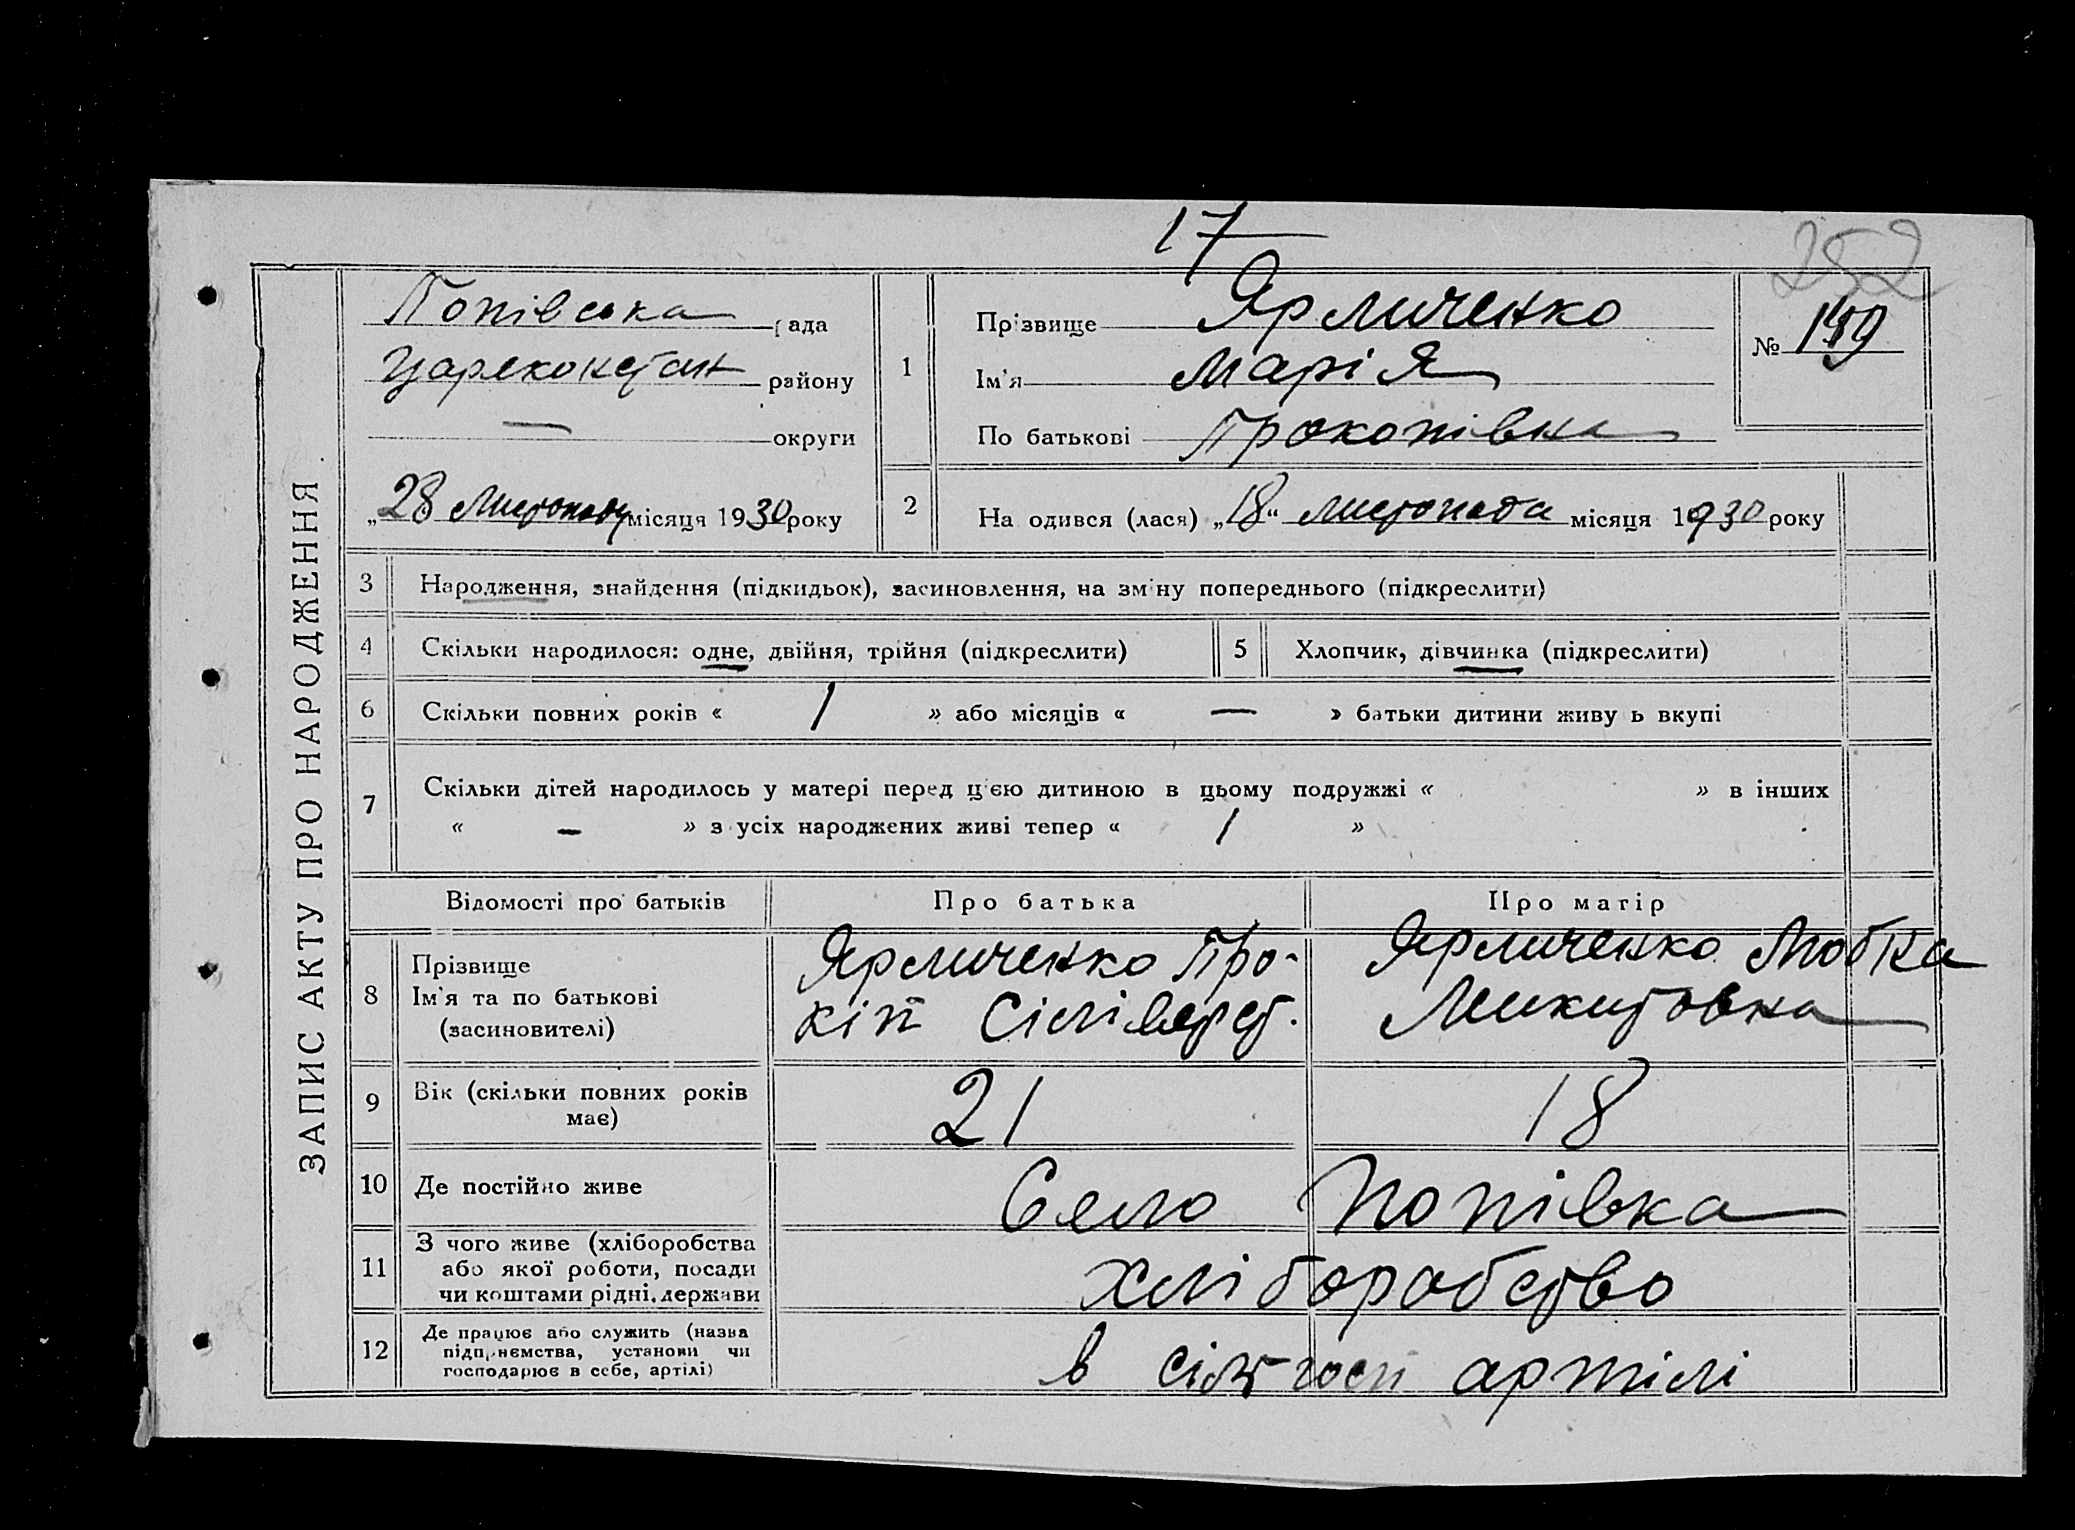 17
252
ЗАПИС АКТУ ПРО НАРОДЖЕННЯ
Попівська рада
Царекостан району
— округи
„28 Листопада місяця 1930 року
1
Прізвище Ярмиченко
Ім'я Марія
По батькові Прокопівна
№ 149
2 На одився (лася) „18“ листопада місяця 1930 року
3 Народження, знайдення (підкидьок), засиновлення, на зміну попереднього (підкреслити)
4 Скільки народилося: одне, двійня, трійня (підкреслити)
5 Хлопчик, дівчинка (підкреслити)
6 Скільки повних років « 1 » або місяців « — » батьки дитини живу ь вкупі
7 Скільки дітей народилось у матері перед цією дитиною в цьому подружжі « » в інших
« – » з усіх народжених живі тепер « 1 »
Відомості про батьків Про батька Про матір
8 Прізвище
Ім'я та по батькові
(засиновителі)
Ярмиченко Про-
кіп Сіліверст.
Ярмиченко Любка
Микитовна
9 Вік (скільки повних років
має)
21 18
10 Де постійно живе Село Попівка
11 З чого живе (хліборобства
або якої роботи, посади
чи коштами рідні, держави
хліборобство
12 Де працює або служить (назва
підприємства, установи чи
господарює в себе, артілі)
в сільгосп артілі